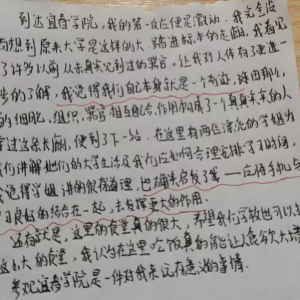 到达宜春学院，我的第一反应便是激动，我完全没
有想到原来大学是这样的大。踏进标本的走廊，我看见
了许多以前从未见到过的器官，让我对人体有了更进一
步的了解，我觉得我们自己本身就是一个奇迹，
的细胞，组织，器官相互配合，作用构成了一个真真实实的人
穿过这条走廊，便到了下一站，在这里有两位漂亮的学姐为
我们讲解他们的大学生活及我们应如何合理安排学习时间，
我觉得学姐讲的很有道理，也确实启发了我——应将手机与
学习良好的结合在一起，去发挥更大的作用。
这有就是，这里的食堂真的很大，不里我们学校也可以
这么大的食堂，我认为在这里吃饭真的能让食欲大增
参观宜春学院是一件对我来说有意义的事情。